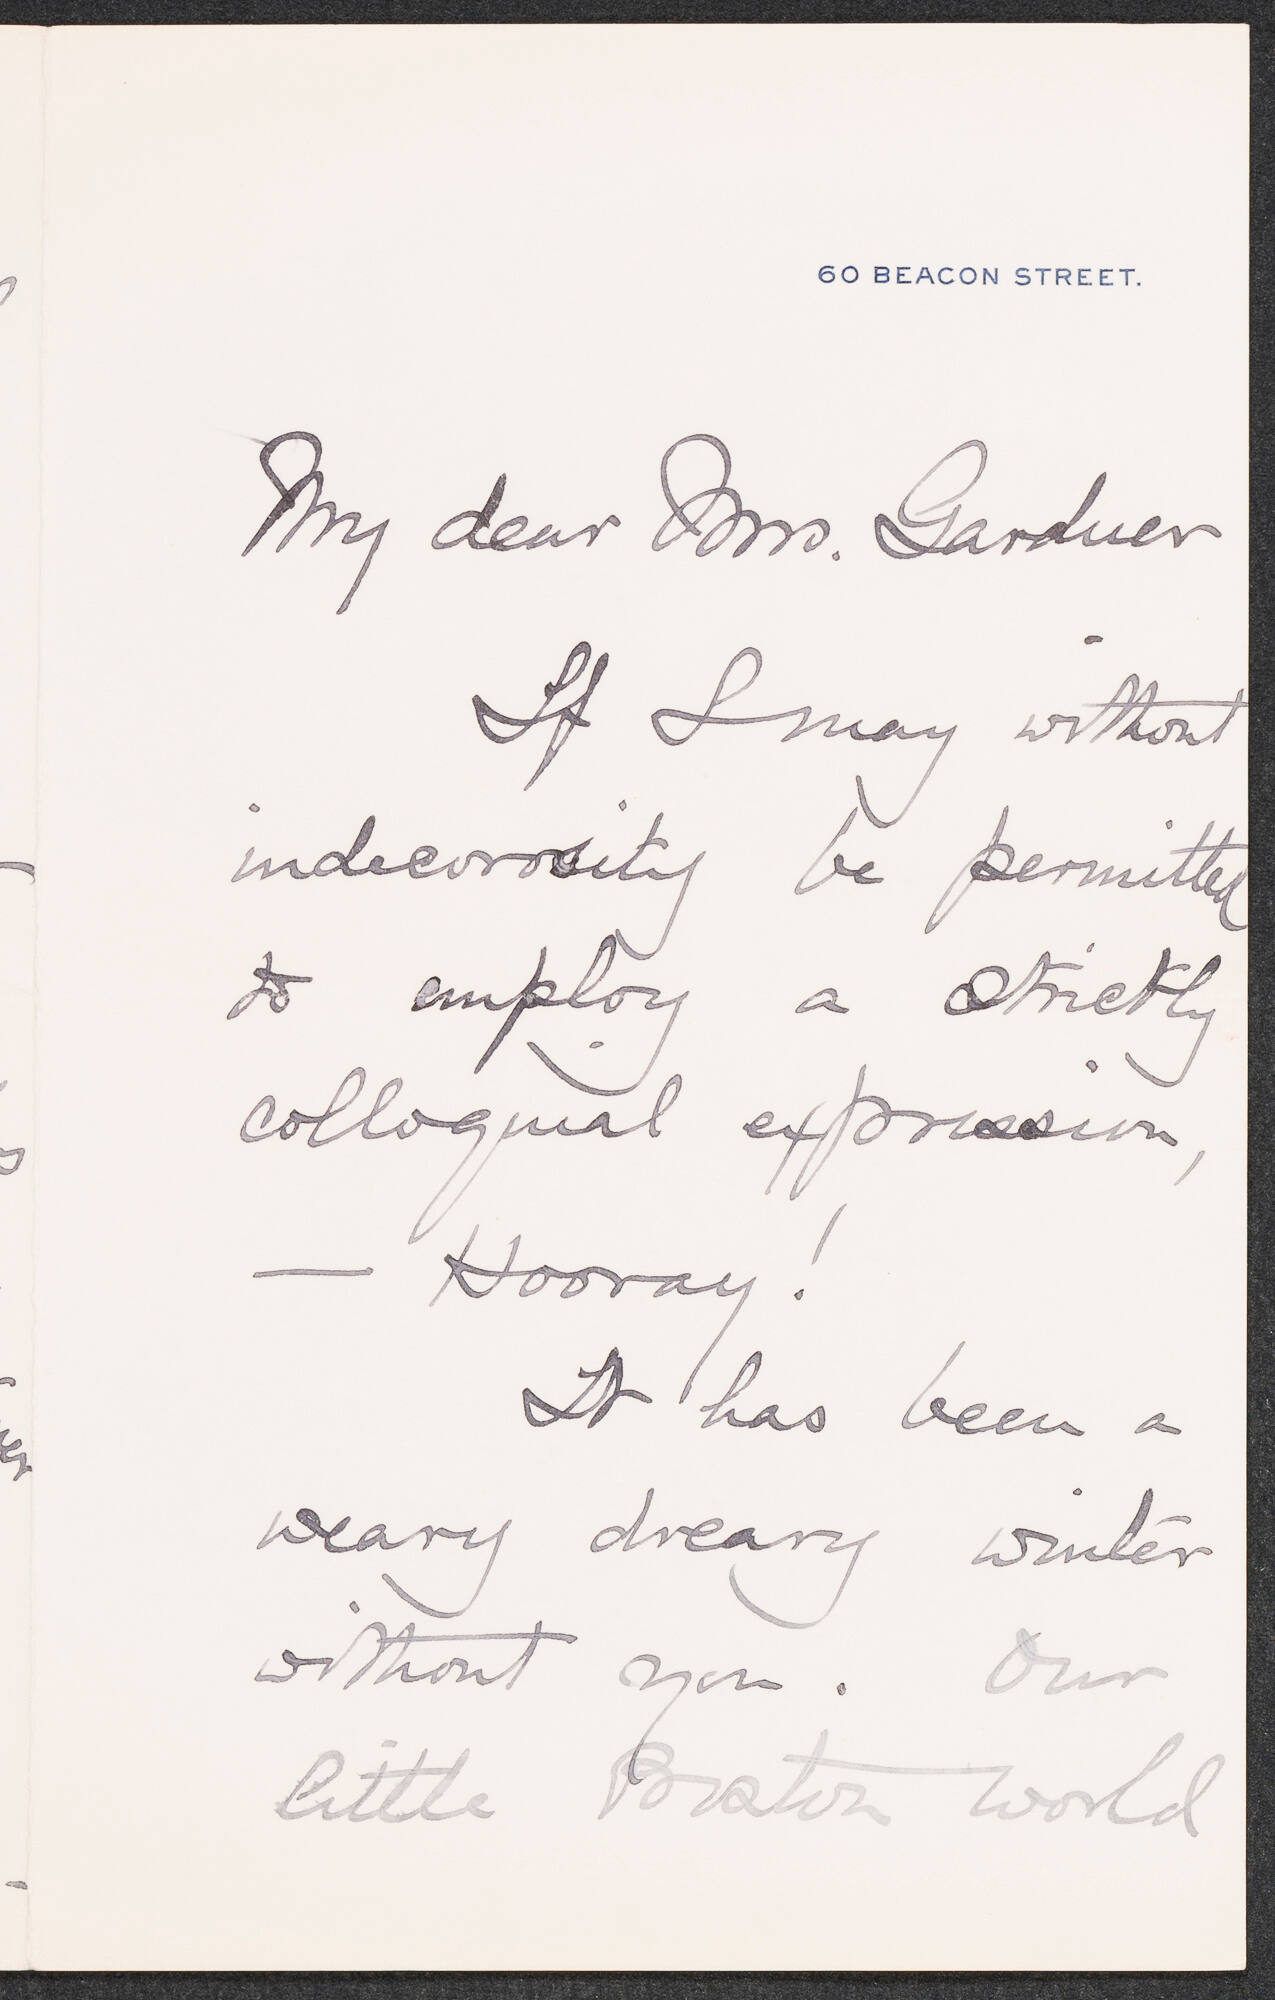 60 BEACON STREET.
My dear Mrs. Gardner
If I may without
indecorosity be permitted
to employ a strictly
colloquial expression,
— Hooray!
It has been a
weary dreary winter
without you. Our
little Boston world